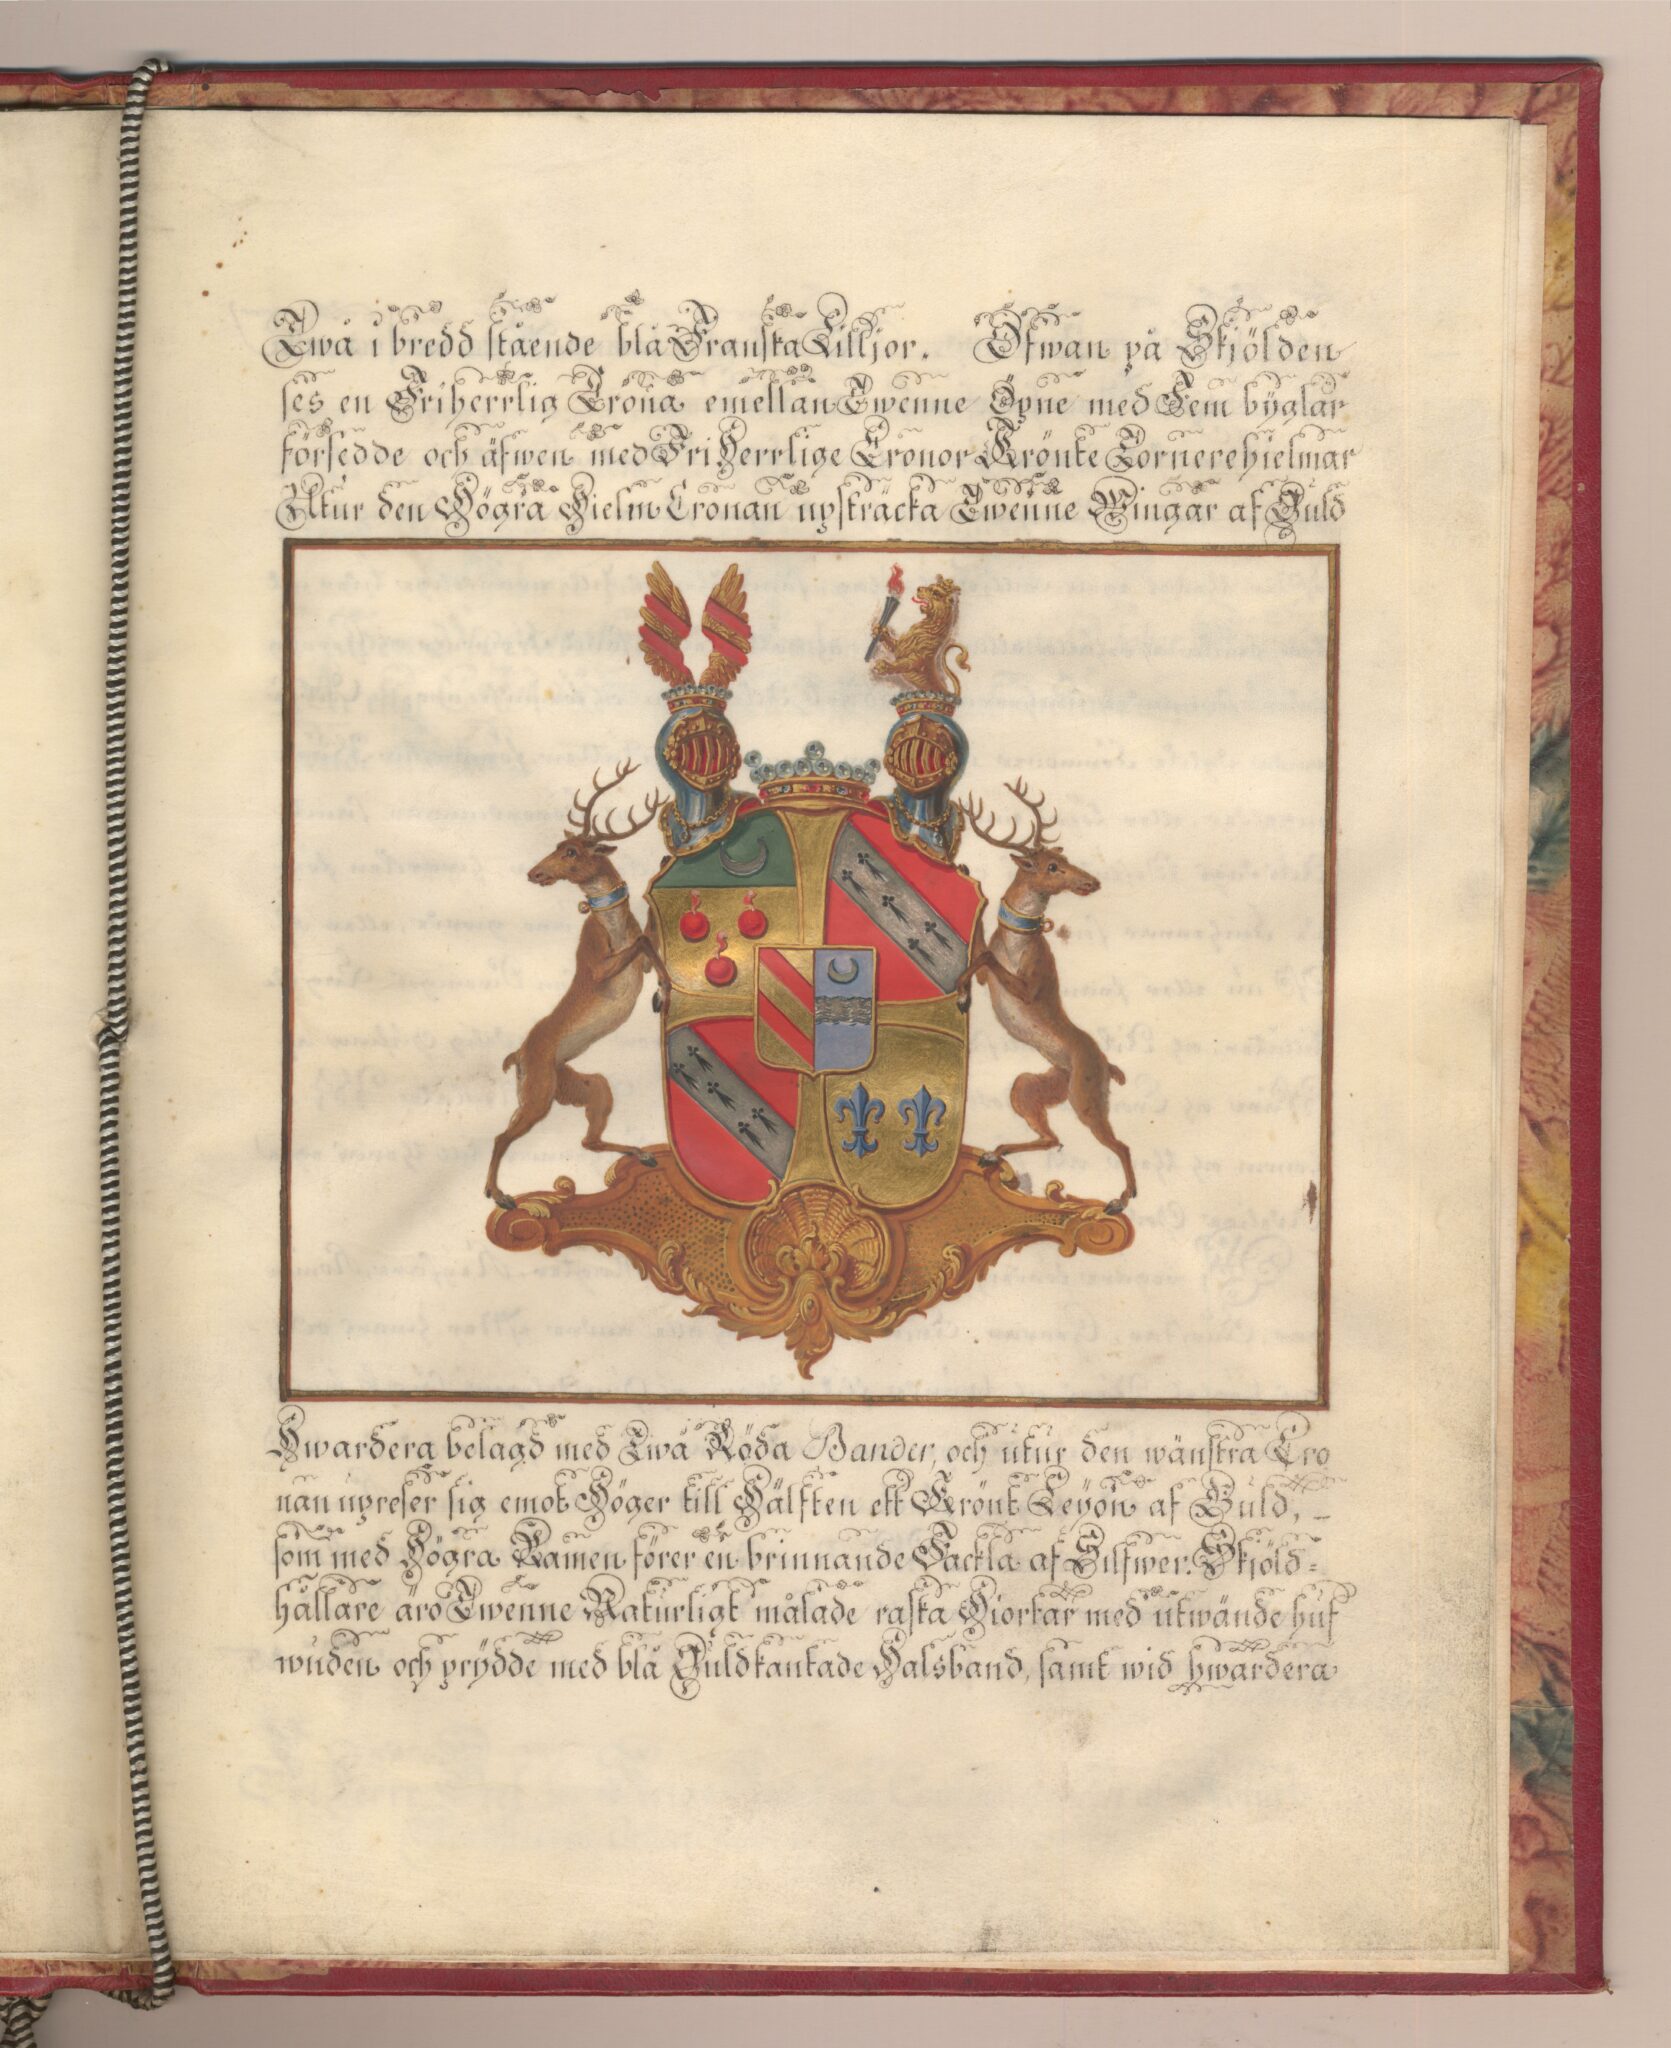 Twå i bredd stående blå Franska Lilljor. Ofwan på Skjölden
ses en Friherrlig Crona emellan Twenne Öpne med Fem byglar
försedde och äfwen med FriHerrlige Cronor Krönte Tornerehielmar
Utur den Högra Hielm Cronan upsträcka Twenne Wingar af Guld
Hwardera belagd med Twå Röda Bander, och utur den wänstra Cro
nan upreser sig emot Höger till Hälften ett Krönt Leyon af Guld,
som med Högra Ramen förer en brinnande Fackla af Silfwer. Skjöld=
hållare äro Twenne Naturligt målade raska Hiortar med utwände huf
wuden och prydde med blå Guldkantade Halsband, samt wid hwardera